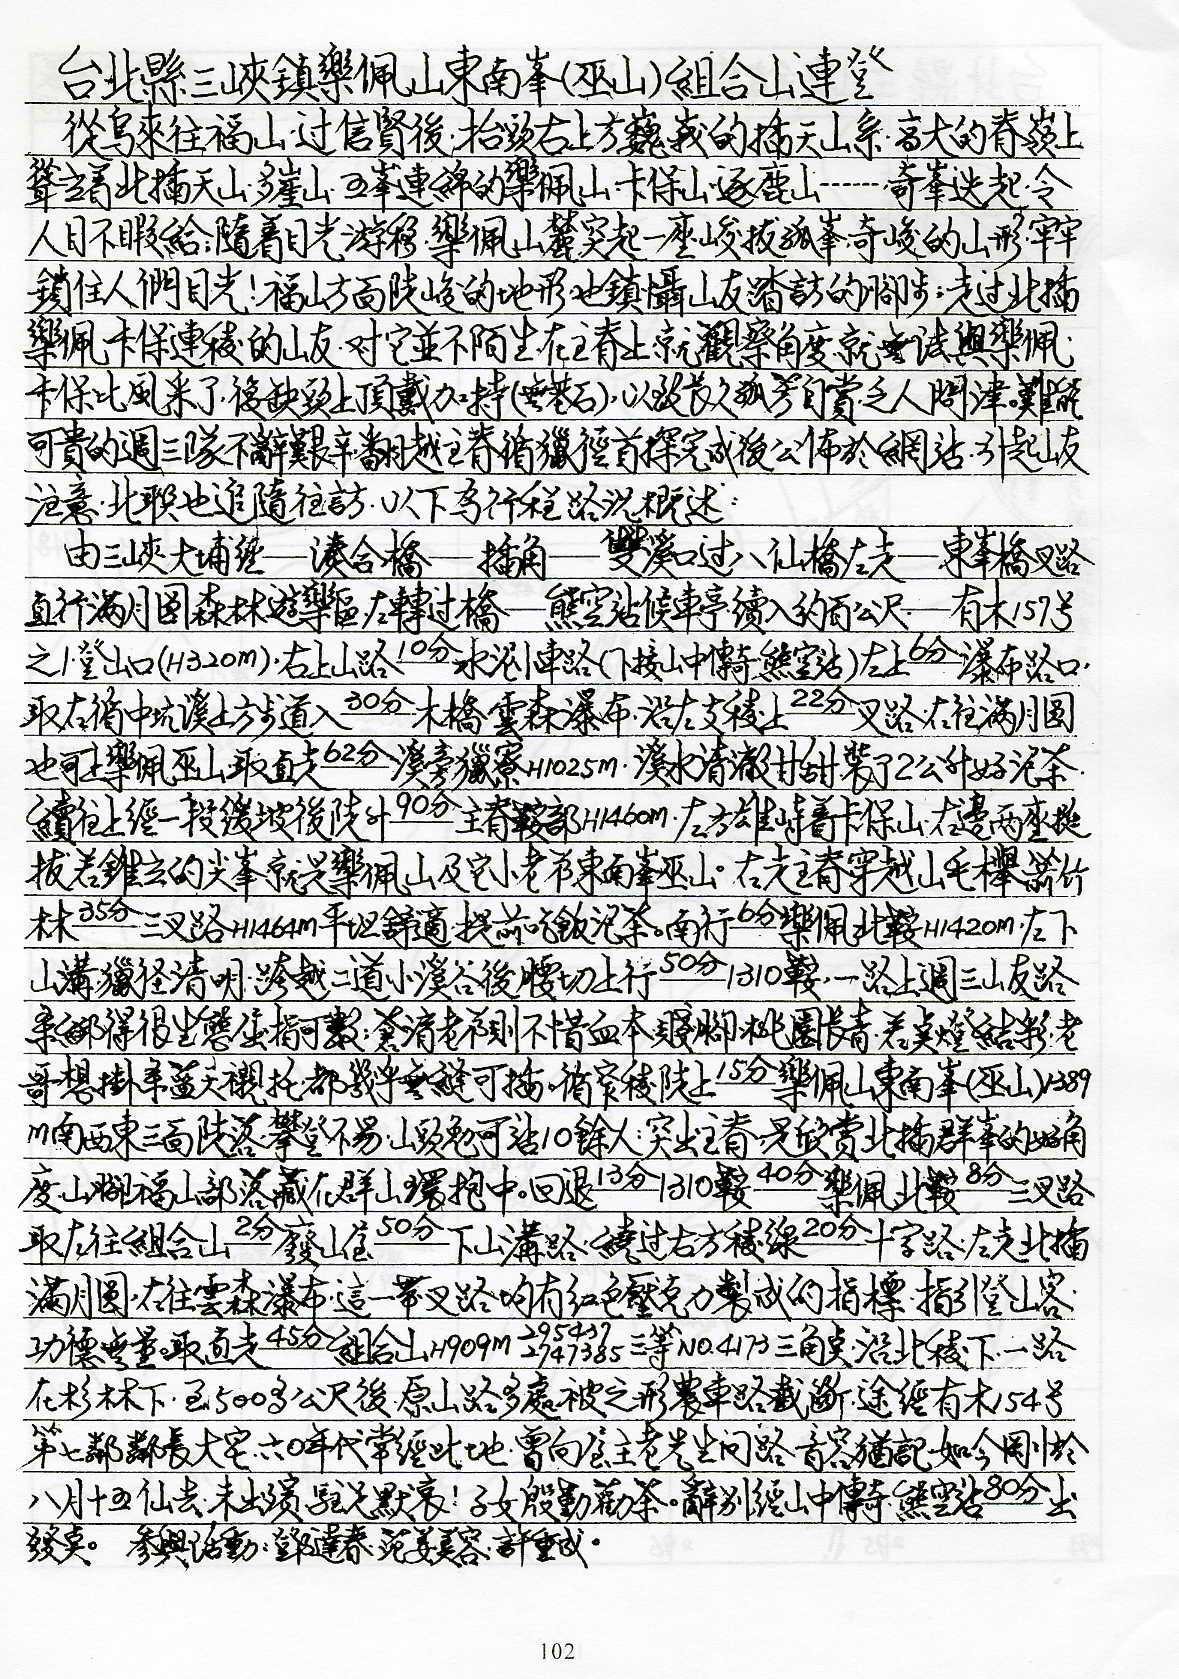 台北縣三峽鎮樂佩山東南峯(巫山)組合山連登
從烏來往福山·过信賢後·抬頭右上方巍峩的插天山系·高大的脊嶺上
聳立着北插天山·多崖山·五峯連綿的樂佩山·卡保山·逐鹿山……奇峯迭起·令
人目不暇給;隨着目光游移·樂佩山麓突起一座峻拔孤峯·奇峻的山形牢牢
鎖住人們目光!福山方面陡峻的地形也鎮懾山友踏訪的脚步;走过北插
樂佩卡保連稜的山友·对它並不陌生·在主脊上就觀察角度就無法與樂佩·
卡保比風采了·後缺頭上頂戴加持(無基石)·以致長久孤芳自賞·乏人問津。難能
可貴的週三隊不辭艱辛·翻越主脊循獵徑首探完成後公佈於網站·引起山友
注意·北联也追隨往訪·以下为行程路況概述:
由三峽大埔經—湊合橋—插角—雙溪口过八仙橋左走—東峯橋叉路
直行滿月圓森林遊樂區左轉过橋—熊空站候車亭續入約百公尺—有木157号
之1·登山口(H320m)·右上山路10分水泥車路(下接山中傳奇熊空站)左上6分瀑布路口·
取右循中坑溪上方步道入30分木橋雲森瀑布·沿左支稜上22分叉路·右往滿月圓
也可上樂佩巫山·取直走62分溪旁獵寮H1025m·溪水清澈甘甜裝了2公升好泡茶·
續往上經一段緩坡後陡升90分主脊鞍部H1460m·左方雄峙着卡保山·右邊兩座挺
拔若錐立的尖峯就是樂佩山及它小老弟東南峯巫山。右走主脊穿越山毛櫸箭竹
林35分三叉路H1464m平坦舒適·提前吃飯泡茶。南行6分樂佩北鞍H1420m·左下
山溝獵径清明·跨越二道小溪谷後腰切上行50分1310鞍·一路上週三山友路
条綁得很生態·屈指可數;蒼渭老弟則不惜血本·賤脚·桃園長青·若点燈結彩·老
哥想掛条蓝天襯托·都幾乎無縫可插。循窄稜陡上15分樂佩山東南峯(巫山)1389
m南西東三面陡落·攀登不易·山頭勉可站10餘人;突出主脊·是欣賞北插群峯的好角
度·山脚福山部落藏在群山環抱中。回退13分1310鞍40分樂佩北鞍8分三叉路
取左往組合山2分廢山屋50分下山溝路·繞过右方稜線20分十字路·左走北插
滿月圓·右往雲森瀑布·這一帶叉路均有紅色壓克力製成的指標·指引登山客·
功德無量。取直走45分組合山H909m 295437 2747385 三等NO.4173三角点·沿北稜下·一路
在杉林下·至500多公尺後·原山路多處被之形農車路截斷·途經有木154号
第七鄰鄰長大宅·六〇年代常經此地·曾向屋主老先生问路·音容猶記·如今剛於
八月十五仙去·未出殯·駐足默哀!子女殷勤勸茶。辭别經山中傳奇熊空站80分出
發点。 參與活動:鄧達春·范姜美容·許重成。
102